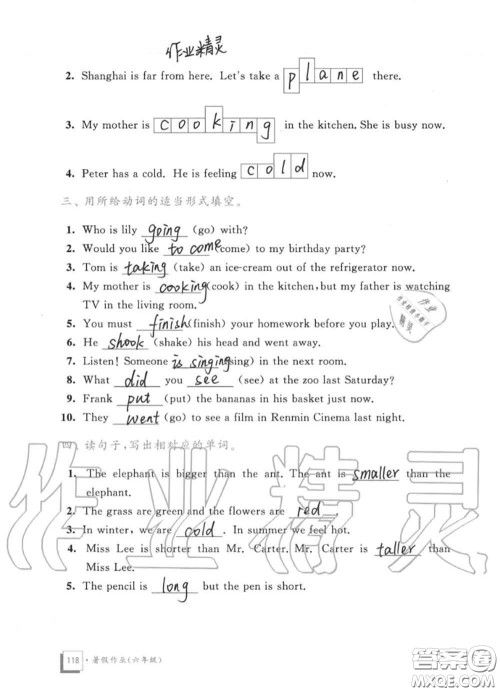 作业精灵
2. Shanghai is far from here. Let's take a plane there.
3. My mother is cooking in the kitchen. She is busy now.
4. Peter has a cold. He is feeling cold now.
三、用所给动词的适当形式填空。
1. Who is lily going (go) with?
2. Would you like to come (come) to my birthday party?
3. Tom is taking (take) an ice-cream out of the refrigerator now.
4. My mother is cooking (cook) in the kitchen, but my father is watching
TV in the living room.
5. You must finish (finish) your homework before you play.
6. He shook (shake) his head and went away.
7. Listen! Someone is singing (sing) in the next room.
8. What did you see (see) at the zoo last Saturday?
9. Frank put (put) the bananas in his basket just now.
10. They went (go) to see a film in Renmin Cinema last night.
四、读句子,写出相对应的单词。
1. The elephant is bigger than the ant. The ant is smaller than the
elephant.
2. The grass are green and the flowers are red.
3. In winter, we are cold. In summer we feel hot.
4. Miss Lee is shorter than Mr. Carter. Mr. Carter is taller than
Miss Lee.
5. The pencil is long but the pen is short.
118 · 暑假作业(六年级)
作业精灵
答案圈
MXQE.COM